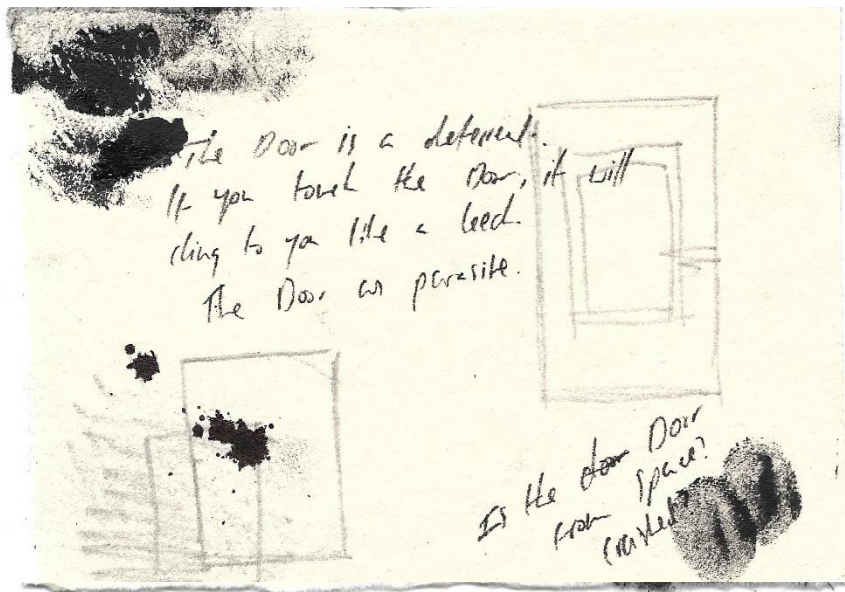 The Door is a deterrent.
If you touch the Door, it will
cling to you like a leech.
The Door as parasite.
Is the door Door
from space?
Crashed?